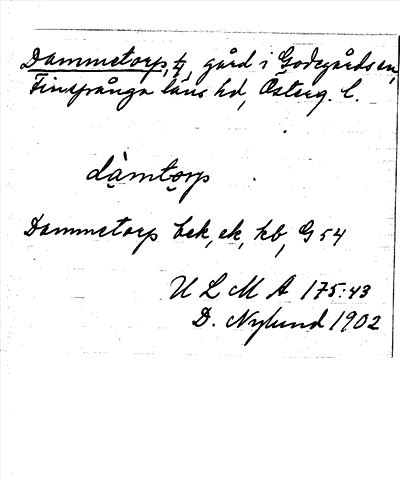 Dammetorp, 1/4, gård i Godegårds sn,
Finspånga läns hd, Österg. l.
dàmtorp
Dammetorp bek, ek, kb, G 54
U L M A 175:43
D. Nylund 1902